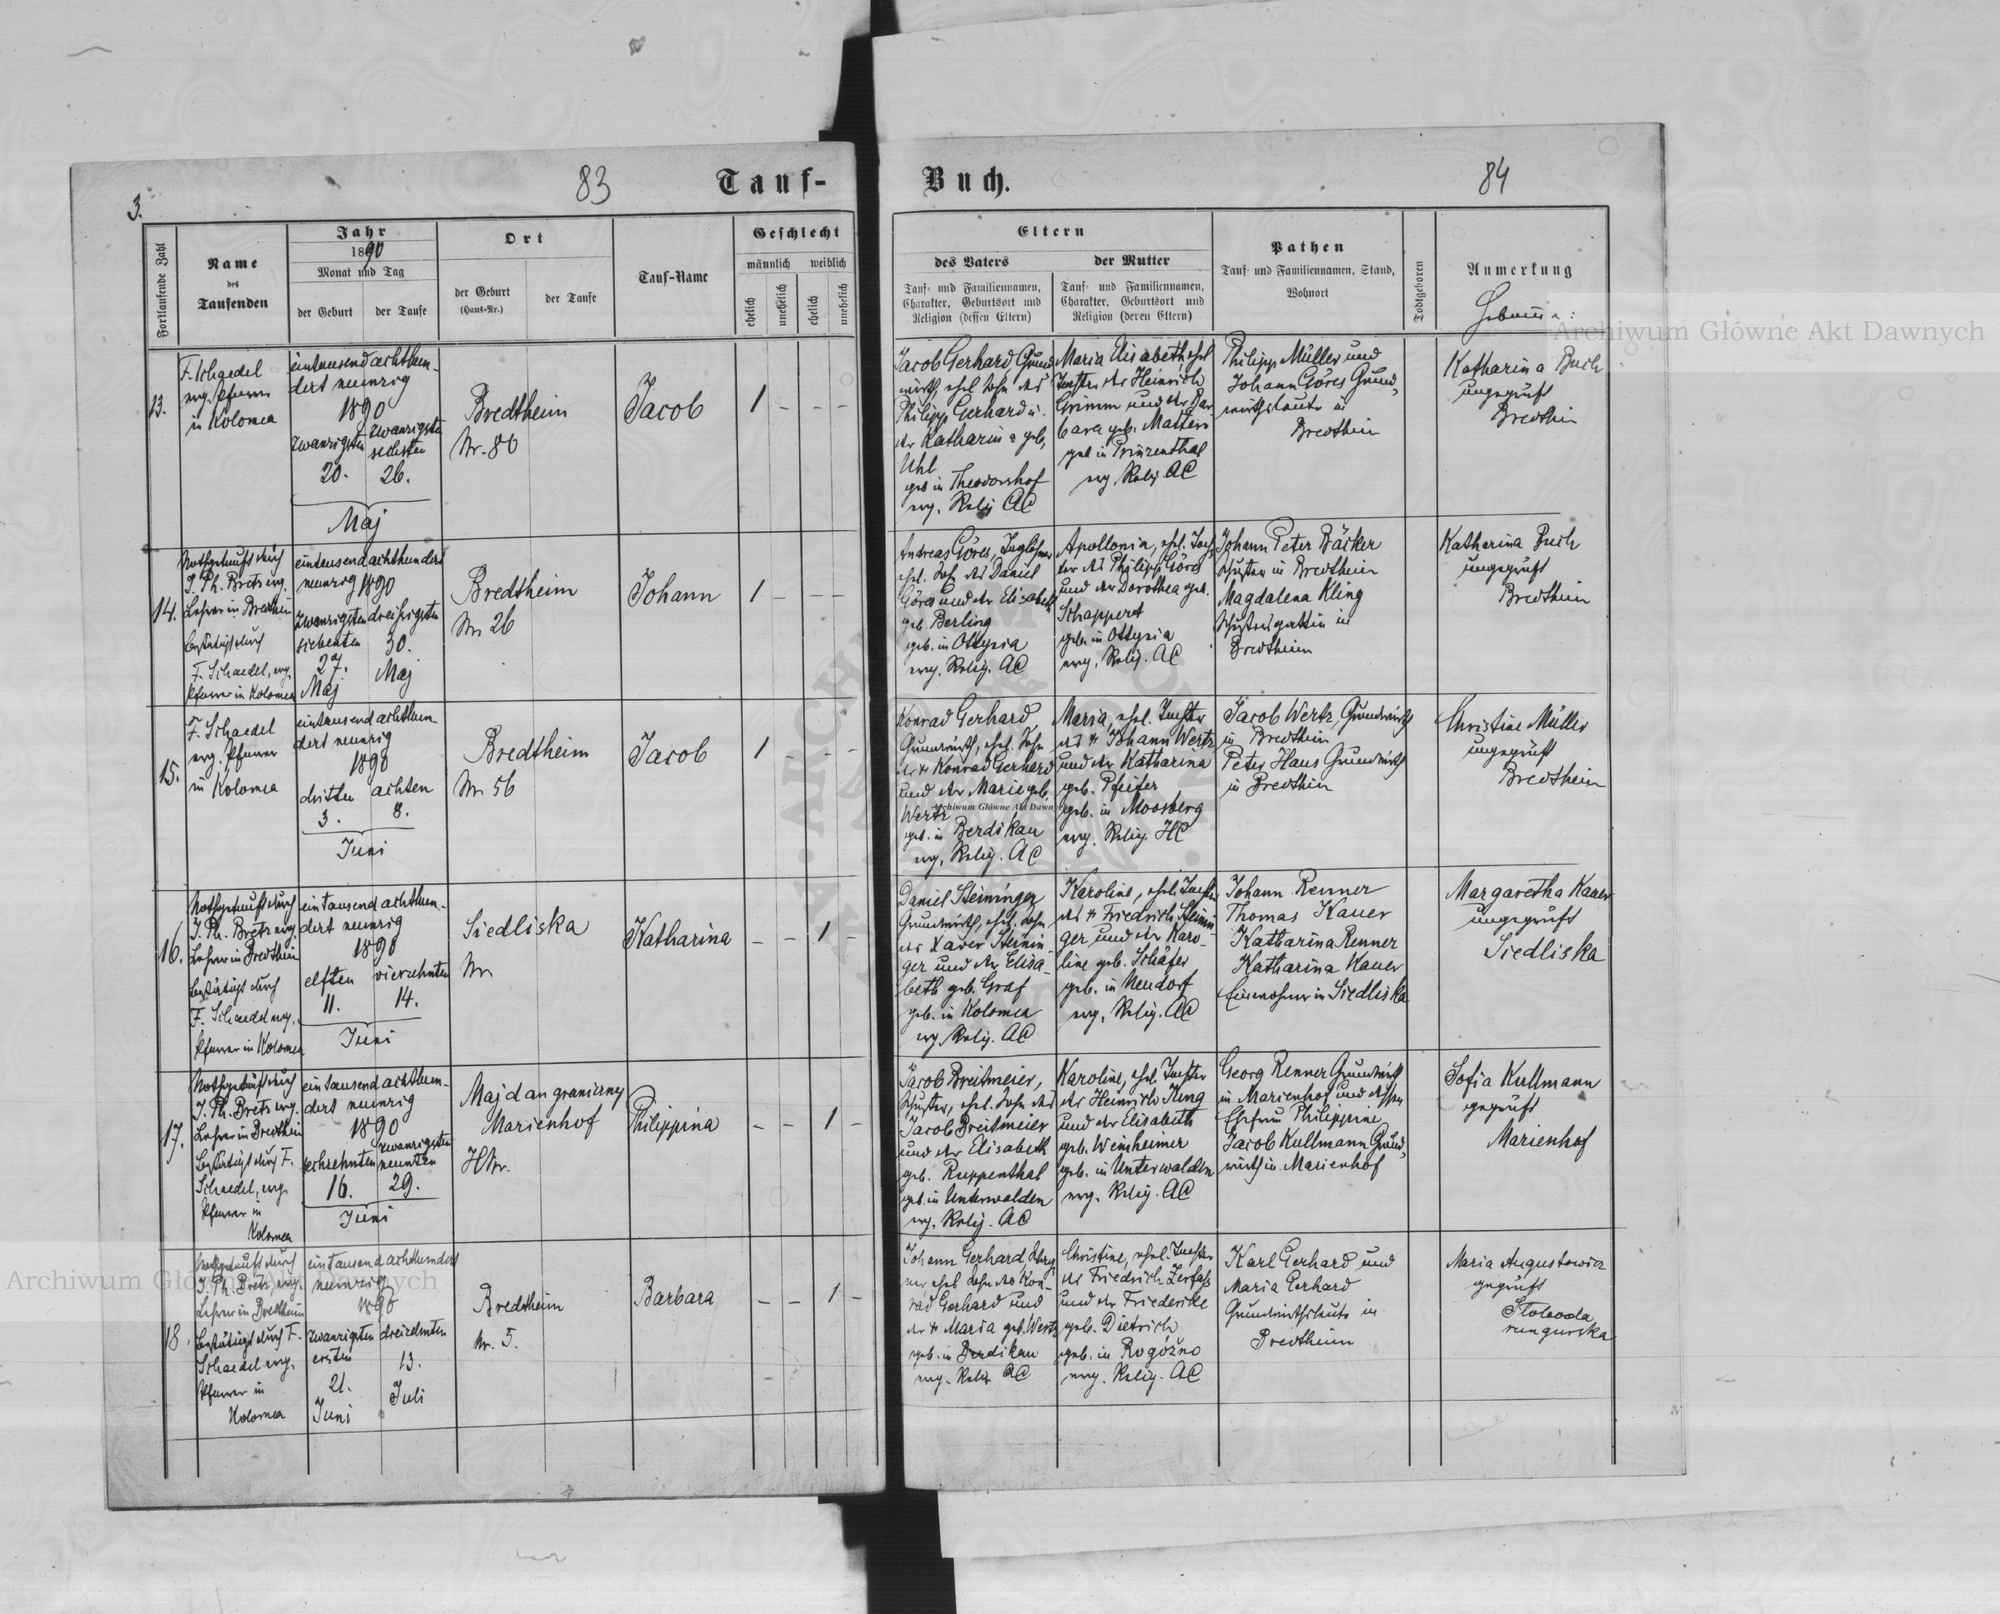 83
Tauf-
3.
Fortlaufende Zahl
Name
des
Taufenden
Jahr
1890
Monat und Tag
der Geburt
der Taufe
Ort
der Geburt
(Haus-Nr.)
der Taufe
Tauf-Name
Geschlecht
männlich
weiblich
ehelich
unehelich
ehelich
unehelich
13.
F. Schaedel
evg. Pfarrer
in Kolomea
eintausend achthun-
dert neunzig
1890
zwanzigsten
20.
zwanzigsten
sechsten
26.
Maj
Bredtheim
Nr. 86
Jacob
1 - - -
14.
Nothgetauft durch
J. Ph. Bretz evg.
Lehrer in Bredtheim
bestätigt durch
F. Schaedel, evg.
Pfarrer in Kolomea
eintausend achthundert
neunzig 1890
zwanzigsten
siebenten
27.
Maj
dreißigsten
30.
Maj
Bredtheim
Nr. 26
Johann
1 - - -
15.
F. Schaedel
evg. Pfarrer
in Kolomea
eintausend achthun-
dert neunzig
1890
dritten
3.
achten
8.
Juni
Bredtheim
Nr. 56
Jacob
1 - - -
16.
Nothgetauft durch
J. Ph. Bretz evg.
Lehrer in Bredtheim
bestätigt durch
F. Schaedel evg.
Pfarrer in Kolomea
eintausend achthun-
dert neunzig
1890
elften
11.
vierzehnten
14.
Juni
Siedliska
Nr.
Katharina
- - 1 -
17.
Nothgetauft durch
J. Ph. Bretz evg.
Lehrer in Bredtheim
bestätigt durch F.
Schaedel, evg.
Pfarrer in
Kolomea
eintausend achthun-
dert neunzig
1890
sechzehnten
16.
zwanzigsten
neunten
29.
Juni
Majdan graniczny
Marienhof
HNr.
Philippina
- - 1 -
18.
Nothgetauft durch
J. Ph. Bretz, evg.
Lehrer in Bredtheim
bestätigt durch F.
Schaedel evg.
Pfarrer in
Kolomea
eintausend achthundert
neunzig
1890
zwanzigsten
ersten
21.
Juni
dreizehnten
13.
Juli
Bredtheim
Nr. 5.
Barbara
- - 1 -
Buch.
84
Eltern
des Vaters
Tauf- und Familiennamen,
Charakter, Geburtsort und
Religion (dessen Eltern)
der Mutter
Tauf- und Familiennamen,
Charakter, Geburtsort und
Religion (deren Eltern)
Pathen
Tauf- und Familiennamen, Stand,
Wohnort
Todtgeboren
Anmerkung
Jacob Gerhard, Grund-
wirth, ehel. Sohn des
Philipp Gerhard u.
der Katharina geb.
Uhl
geb. in Theodorshof
evg. Relig. AC
Maria Elisabeth ehel.
Tochter des Heinrich
Grimm und der Bar-
bara geb. Mattern
geb. in Prinzenthal
evg. Relig. AC
Philipp Müller und
Johann Göres Grund-
wirthsleute in
Bredtheim
Katharina Buch
ungeprüft
Bredtheim
Andreas Göres, Taglöhner
ehel. Sohn des Daniel
Göres und der Elisabeth
geb. Berling
geb. in Ottynia
evg. Relig. AC
Apollonia, ehel. Toch-
ter des Philipp Göres
und der Dorothea geb.
Schappert
geb. in Ottynia
evg. Relig. AC
Johann Peter Bäcker
Schuster in Bredtheim
Magdalena Kling
Schustersgattin in
Bredtheim
Katharina Buch
ungeprüft
Bredtheim
Konrad Gerhard,
Grundwirth, ehel. Sohn
des † Konrad Gerhard
und der Marie geb.
Wertz
geb. in Berdikau
evg. Relig. AC
Maria, ehel. Tochter
des † Johann Wertz
und der Katharina
geb. Pfeifer
geb. in Moosberg
evg. Relig. HC
Jacob Wertz, Grundwirth
in Bredtheim
Peter Haus Grundwirth
in Bredtheim
Christine Müller
ungeprüft
Bredtheim
Daniel Steininger
Grundwirth, ehel. Sohn
des Xaver Steinin-
ger und der Elisa-
beth geb. Graf
geb. in Kolomea
evg. Relig. AC
Karoline, ehel. Tochter
des † Friedrich Steinin-
ger und der Karo-
line geb. Schäfer
geb. in Neudorf
evg. Relig. AC
Johann Renner
Thomas Kauer
Katharina Renner
Katharina Kauer
Einwohner in Siedliska
Margaretha Kauer
ungeprüft
Siedliska
Jacob Breitmeier,
Schuster, ehel. Sohn des
Jacob Breitmeier
und der Elisabeth
geb. Ruppenthal
geb. in Unterwalden
evg. Relig. AC
Karoline, ehel. Tochter
des Heinrich Kung
und der Elisabeth
geb. Weinheimer
geb. in Unterwalden
evg. Relig. AC
Georg Renner Grundwirth
in Marienhof und dessen
Ehefrau Philippine
Jacob Kullmann Grund-
wirth in Marienhof
Sofia Kullmann
geprüft
Marienhof
Johann Gerhard
ehel. Sohn des Kon-
rad Gerhard und
der † Maria geb. Wertz
geb. in Berdikau
evg. Relig. AC
Christine, ehel. Tochter
des Friedrich Zerfaß
und der Friedericke
geb. Dietrich
geb. in Rogóźno
evg. Relig. AC
Karl Gerhard und
Maria Gerhard
Grundwirthsleute in
Bredtheim
Maria Augustowicz
geprüft
Słoboda
rungurska
Archiwum Główne Akt Dawnych
Archiwum Główne Akt Dawnych
Archiwum Główne Akt Dawnych